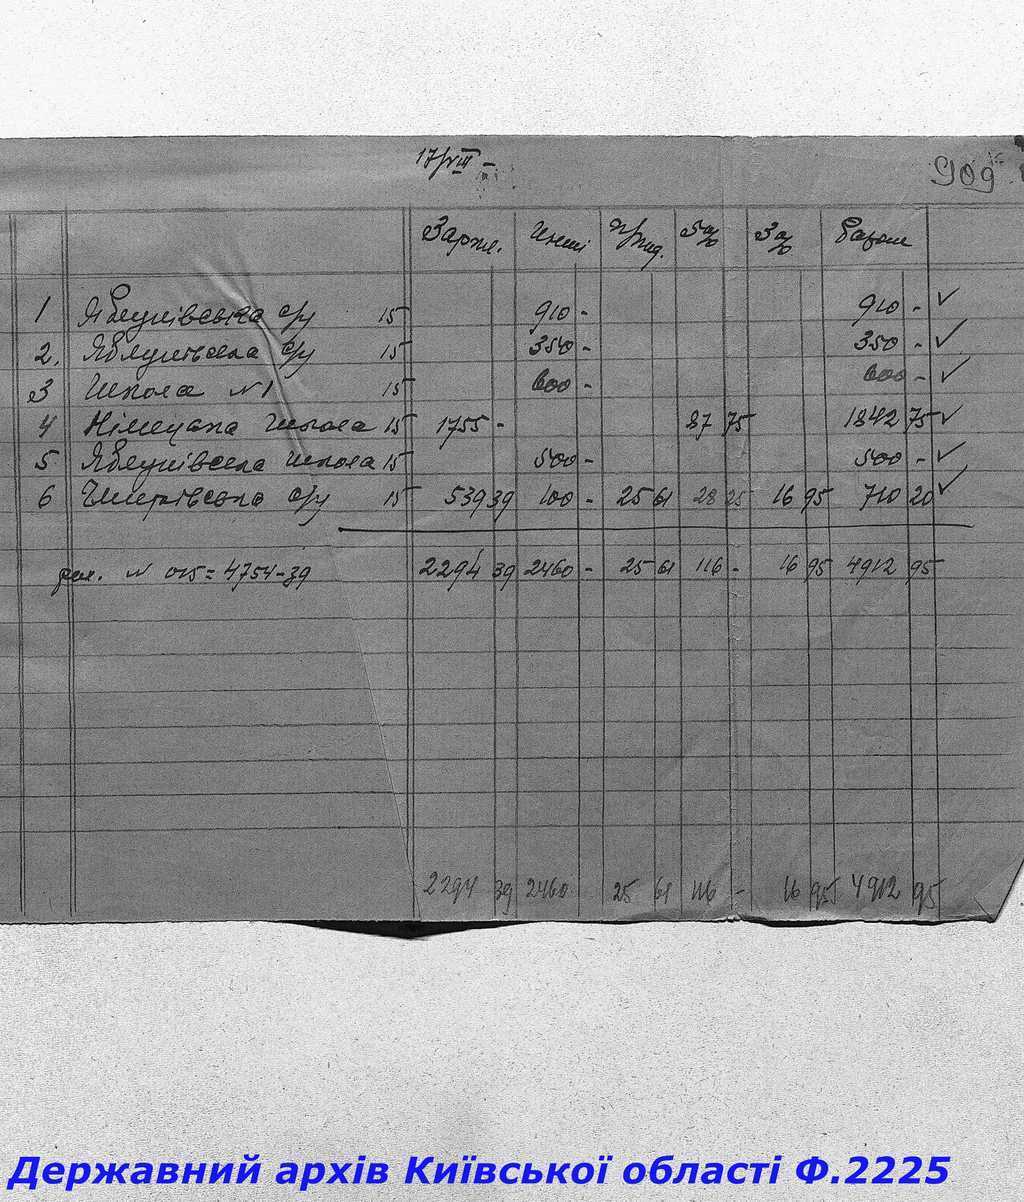 17/VIII –
909
Зарпл. Інші П/под. 5% 3% Разом
1 Яблунівська с/у 15 910 - 910 - ✓
2. Яблунівська с/у 15 350 - 350 - ✓
3 Школа №1 15 600 - 600 - ✓
4 Німецька школа 15 1755 - 87 75 1842 75 ✓
5 Яблунівська школа 15 500 - 500 - ✓
6 с/у 15 539 39 100 - 25 61 28 25 16 95 710 20 ✓
N 015 = 4754-39 2294 39 2460 - 25 61 116 - 16 95 4912 95
2294 39 2460 25 61 116 - 16 95 4912 95
Державний архів Київської області Ф.2225